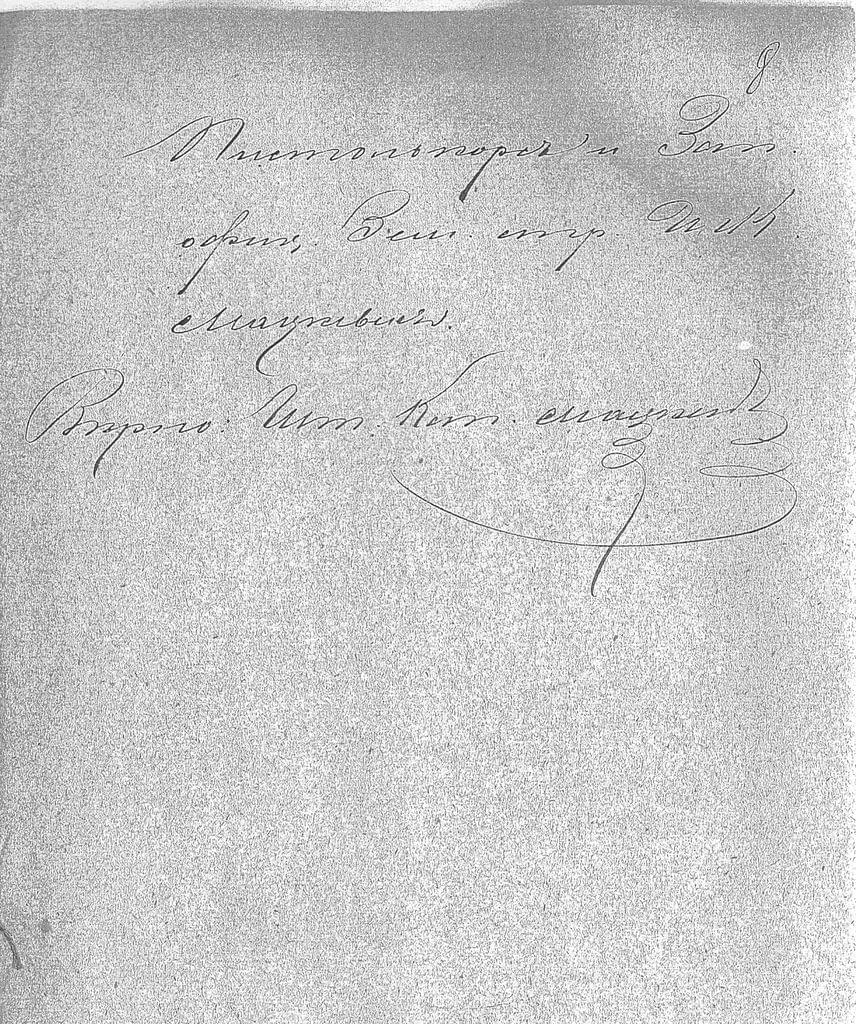 8
Пистолькорсъ и Зап.
офиц. Вел. стр. И. М.
Мацкевичъ.
Вѣрно: Шт. Кап. Мацкевичъ